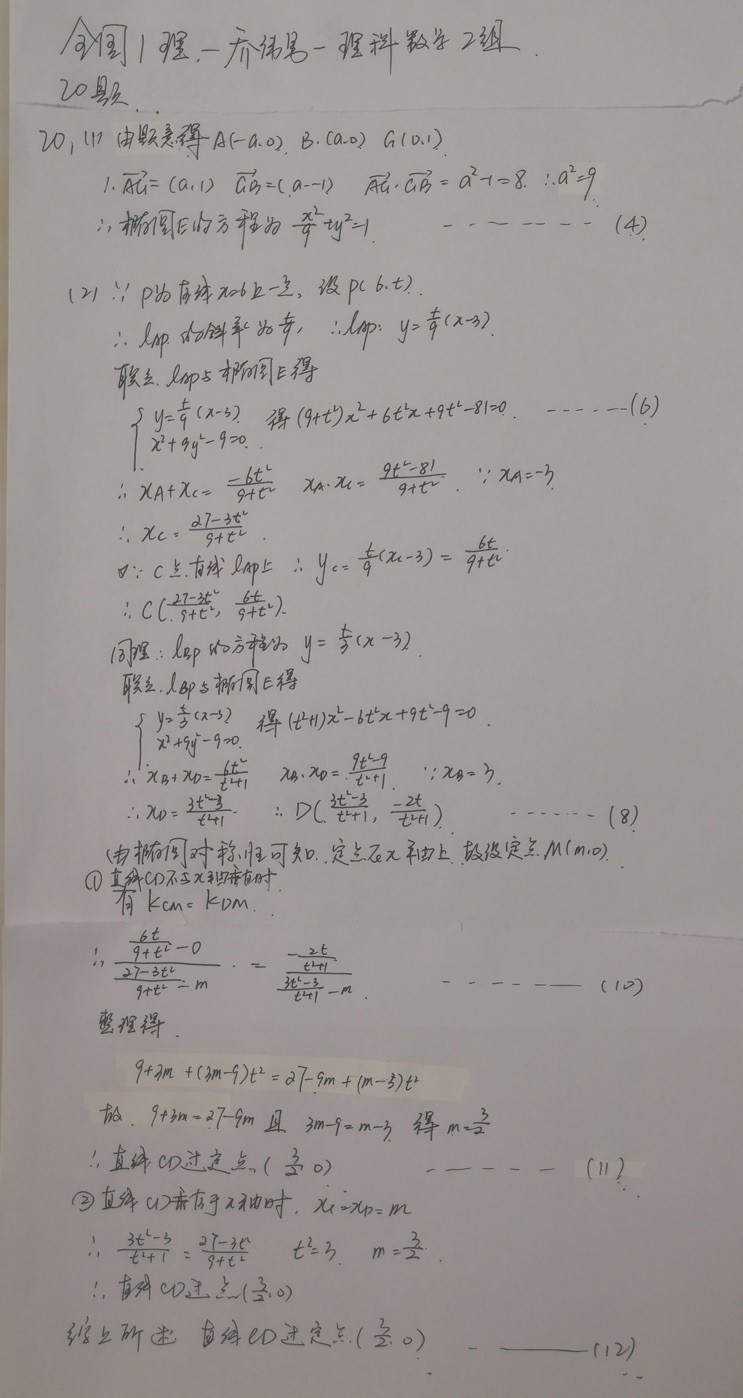 全国1理-乔伟男-理科数学2组.
20题.
20,(1) 由题意得 A(-a,0). B.(a,0) G(0,1)
∴ AG=(a,1) GB=(a,-1) AG·GB=a²-1=8. ∴a²=9
∴椭圆E的方程为 x²/9+y²=1. ------- (4)
(2) ∵ P为直线x=6上一点, 设P(6,t).
∴ lAP的斜率为 t/9, ∴lAP: y=t/9(x-3)
联立 lAP与椭圆E得
{ y=t/9(x-3) 得(9+t²)x²+6t²x+9t²-81=0. ------(6)
x²+9y²-9=0.
∴ xA+xC=-6t²/9+t² xA·xC=9t²-81/9+t². ∵xA=-3
∴ xC=27-3t²/9+t².
又∵C点在直线lAP上 ∴yC=t/9(xC-3)=6t/9+t².
∴C(27-3t²/9+t², 6t/9+t²).
同理: lBP的方程为 y=t/3(x-3).
联立.lBP与椭圆E得
{ y=t/3(x-3) 得(t²+1)x²-6t²x+9t²-9=0.
x²+9y²-9=0.
∴xB+xD=6t²/t²+1 xB·xD=9t²-9/t²+1. ∵xB=3.
∴xD=3t²-3/t²+1. ∴D(3t²-3/t²+1, -2t/t²+1). ------ (8)
由椭圆对称性可知. 定点在x轴上, 故设定点M(m,0).
① 直线CD不与x轴垂直时.
有 KCM=KDM.
∴ (6t/9+t² -0)/(27-3t²/9+t² -m) = (-2t/t²+1)/(3t²-3/t²+1 -m). ------ (10)
整理得.
9+3m+(3m-9)t²=27-9m+(m-3)t²
故. 9+3m=27-9m 且 3m-9=m-3 得 m=3/2
∴直线CD过定点(3/2,0) ------ (11)
②直线CD垂直于x轴时, xC=xD=m
∴ 3t²-3/t²+1=27-3t²/9+t² t²=3 m=3/2.
∴直线CD过点(3/2,0)
综上所述 直线CD过定点(3/2,0) ------(12)